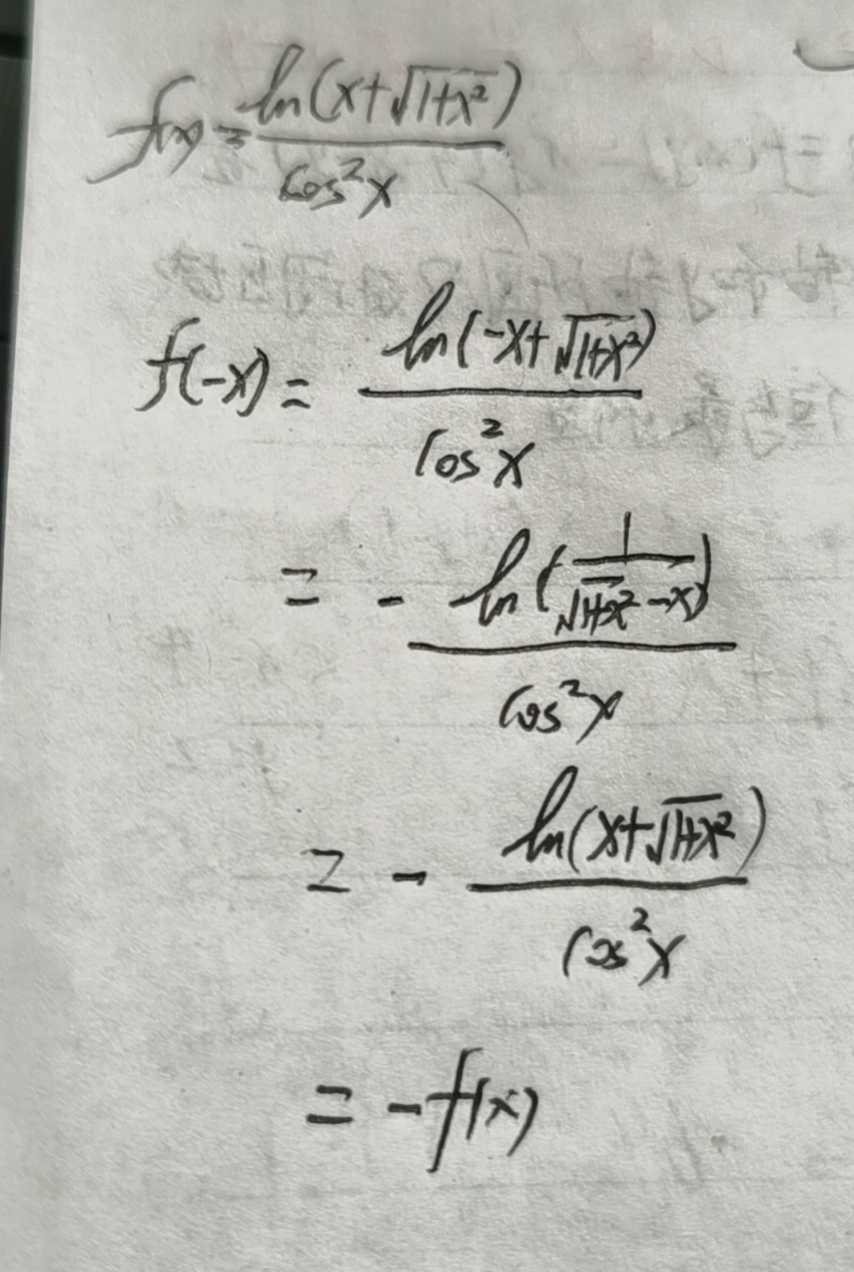 f(x) = \frac{\ln(x+\sqrt{1+x^2})}{\cos^2 x}
f(-x) = \frac{\ln(-x+\sqrt{1+x^2})}{\cos^2 x}
= - \frac{\ln(\frac{1}{\sqrt{1+x^2}-x})}{\cos^2 x}
= - \frac{\ln(x+\sqrt{1+x^2})}{\cos^2 x}
= -f(x)